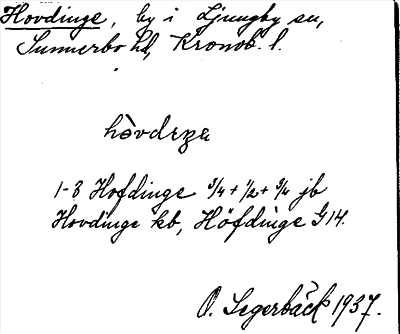 Hovdinge, by i Ljungby sn,
Sunnerbo hd, Kronob. l.
hòvdɩŋa
1-3 Hofdinge 3/4 + 1/2 + 3/4 jb
Hovdinge kb, Höfdinge G 14.
O. Segerbäck 1937.